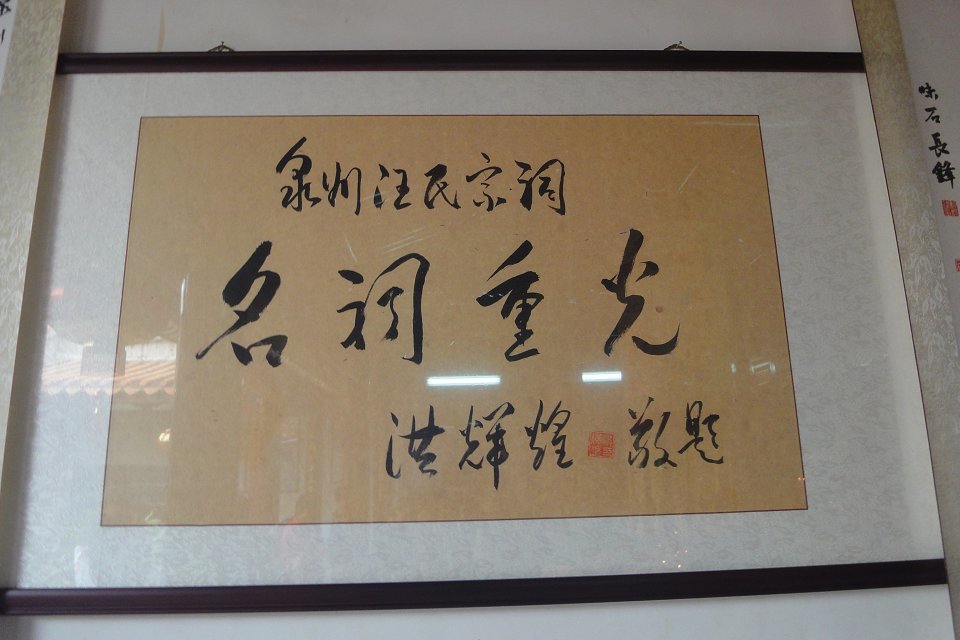 泉州汪氏宗祠
名祠重光
洪輝煌 敬題
味石長鋒